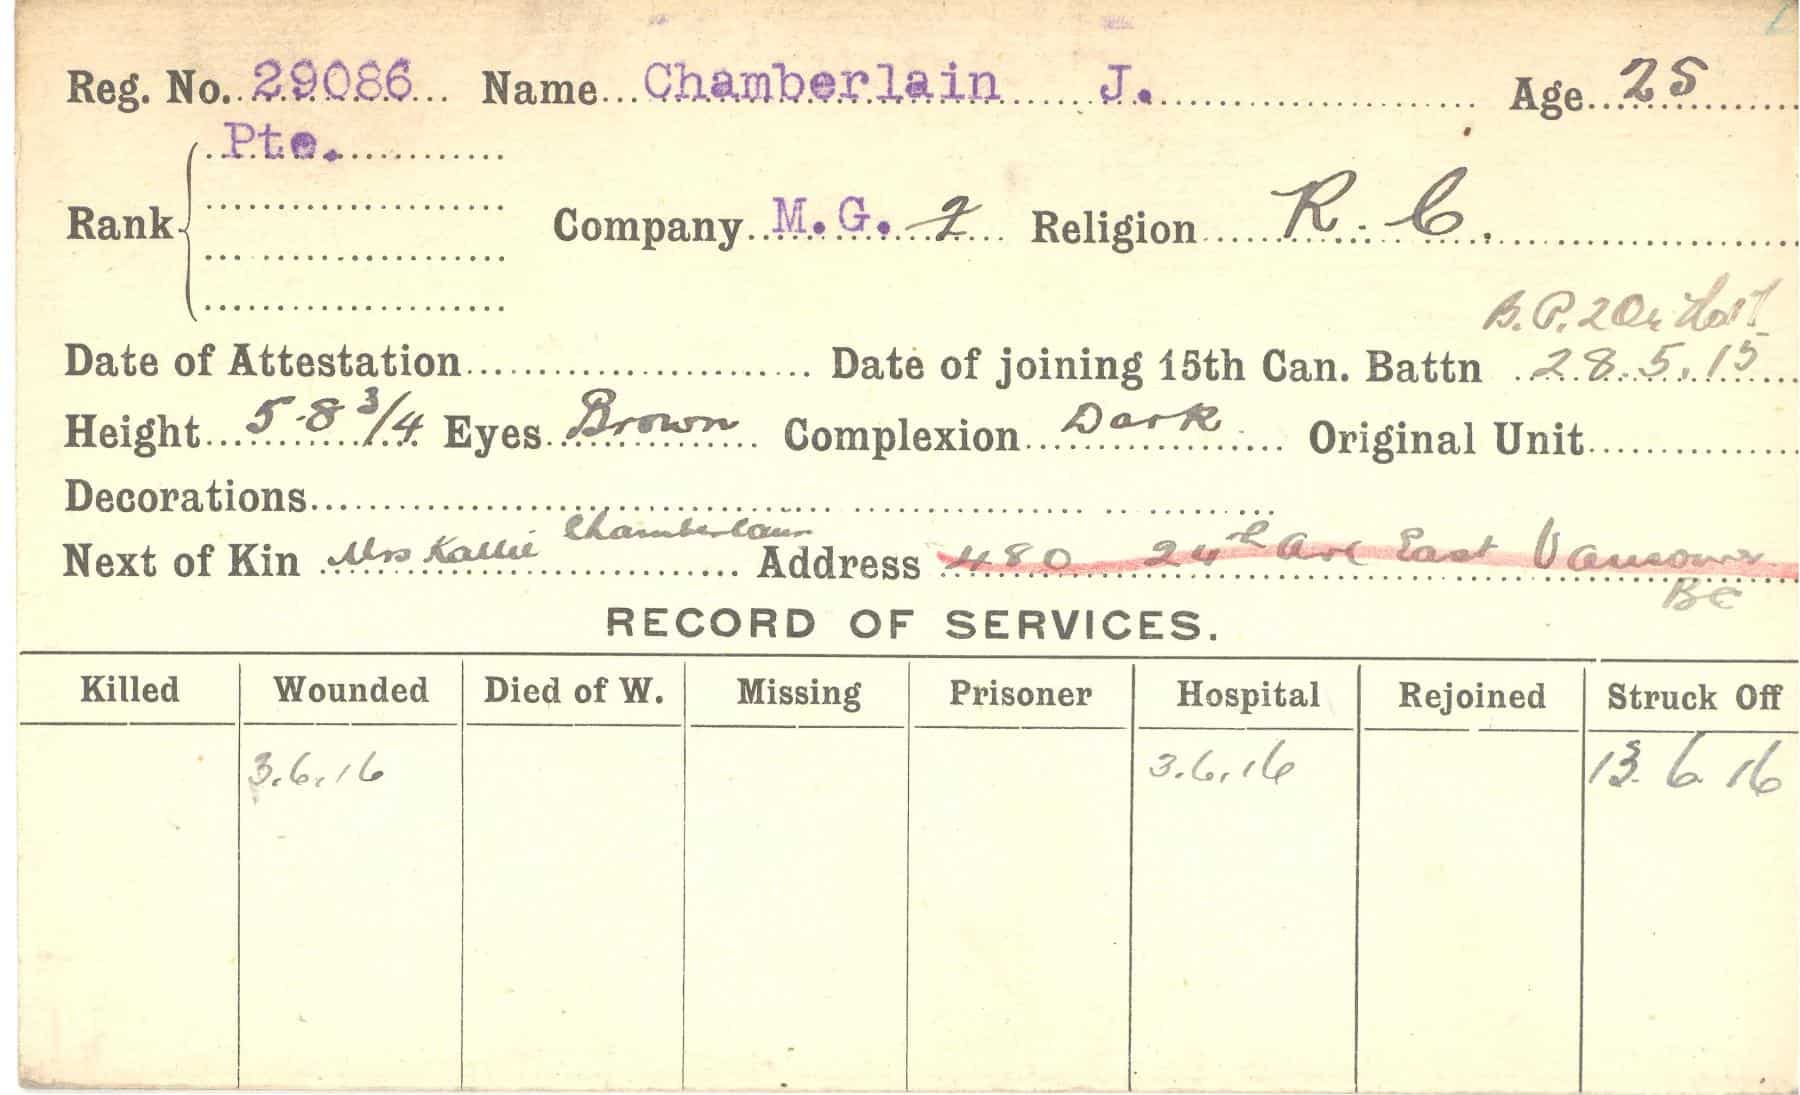 Reg. No. 29086 Name Chamberlain J. Age 25
Pte.
Rank Company M.G. 2 Religion R. C.
B.P. 2
Date of Attestation Date of joining 15th Can. Battn 28.5.15
Height 5-8 3/4 Eyes Brown Complexion Dark Original Unit
Decorations
Next of Kin Mrs Kallie Chamberlain Address 480 24th Ave East Vancouver
BC
RECORD OF SERVICES.
Killed Wounded Died of W. Missing Prisoner Hospital Rejoined Struck Off
3.6.16 3.6.16 13 6 16